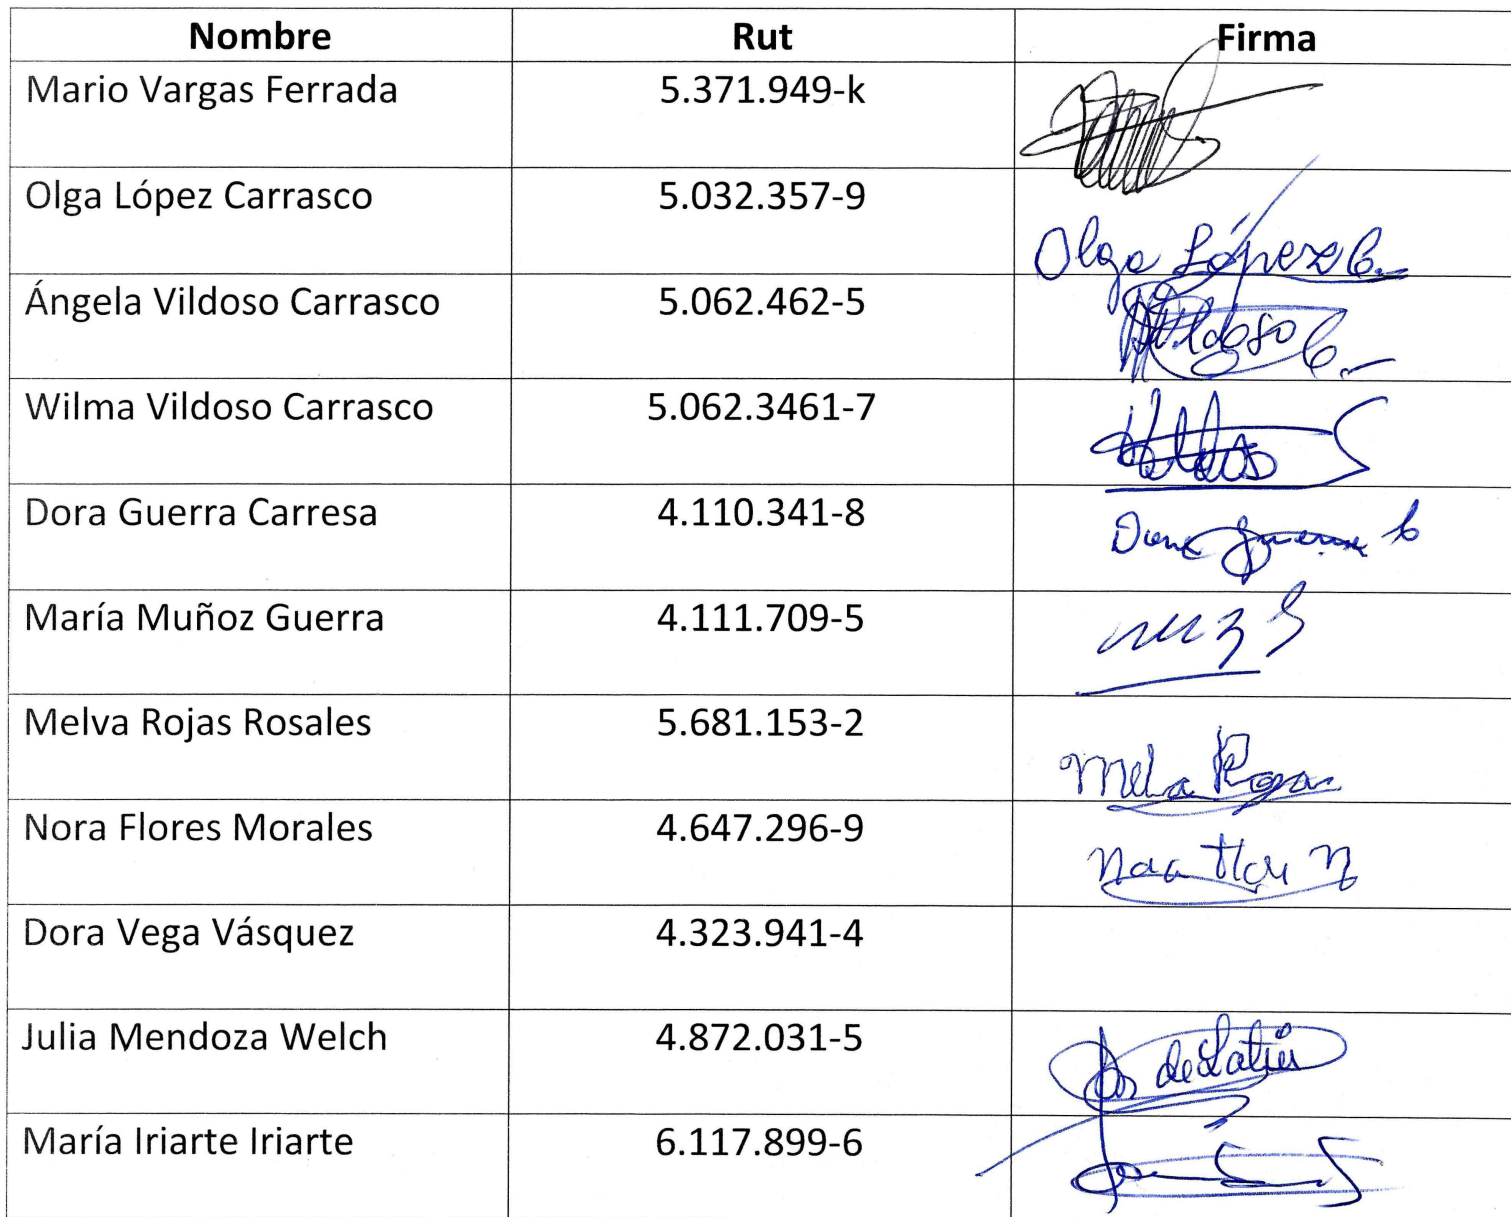 Nombre Rut Firma
Mario Vargas Ferrada 5.371.949-k
Olga López Carrasco 5.032.357-9 Olga López C.
Ángela Vildoso Carrasco 5.062.462-5 Vildoso C.
Wilma Vildoso Carrasco 5.062.3461-7
Dora Guerra Carresa 4.110.341-8 Dora Guerra C
María Muñoz Guerra 4.111.709-5
Melva Rojas Rosales 5.681.153-2 Melva Rojas
Nora Flores Morales 4.647.296-9 Nora Flores M
Dora Vega Vásquez 4.323.941-4
Julia Mendoza Welch 4.872.031-5
María Iriarte Iriarte 6.117.899-6